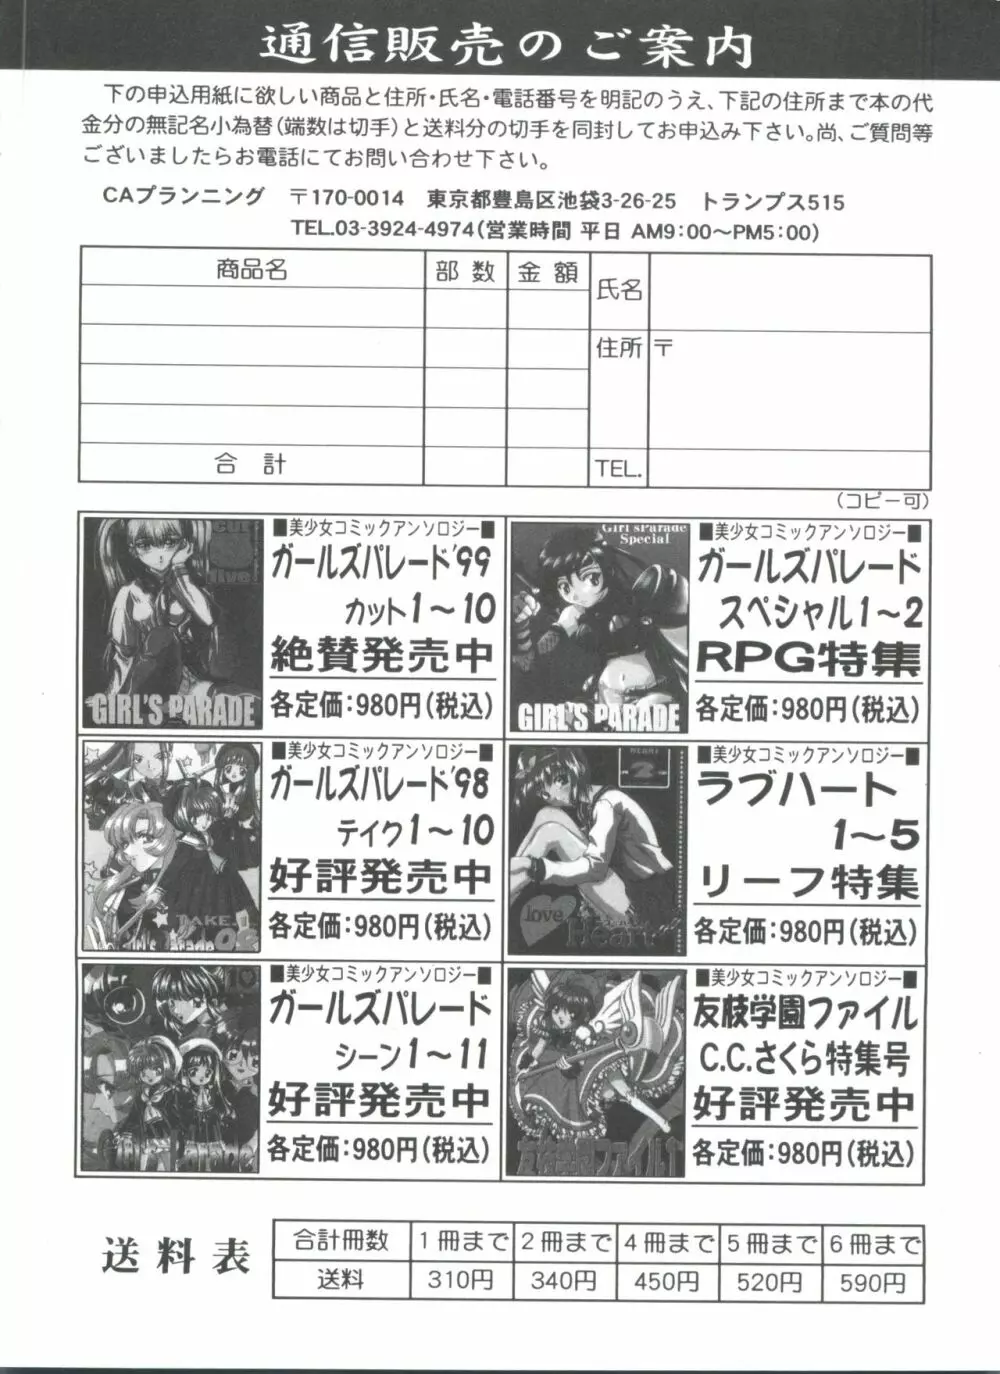 通信販売のご案内
下の申込用紙に欲しい商品と住所・氏名・電話番号を明記のうえ、下記の住所まで本の代
金分の無記名小為替(端数は切手)と送料分の切手を同封してお申込み下さい。尚、ご質問等
ございましたらお電話にてお問い合わせ下さい。
CAプランニング 〒170-0014 東京都豊島区池袋3-26-25 トランプス515
TEL.03-3924-4974(営業時間 平日 AM9:00〜PM5:00)
商品名 部数 金額 氏名
住所 〒
合計 TEL.
(コピー可)
GIRL'S PARADE
■美少女コミックアンソロジー■
ガールズパレード'99
カット1〜10
絶賛発売中
各定価:980円(税込)
Girl'sParade
Special
GIRL'S PARADE
■美少女コミックアンソロジー■
ガールズパレード
スペシャル1〜2
RPG特集
各定価:980円(税込)
TAKE.1
■美少女コミックアンソロジー■
ガールズパレード'98
テイク1〜10
好評発売中
各定価:980円(税込)
2
love
Heart
■美少女コミックアンソロジー■
ラブハート
1〜5
リーフ特集
各定価:980円(税込)
10
Girl's Parade
■美少女コミックアンソロジー■
ガールズパレード
シーン1〜11
好評発売中
各定価:980円(税込)
友枝学園ファイル
■美少女コミックアンソロジー■
友枝学園ファイル
C.C.さくら特集号
好評発売中
各定価:980円(税込)
送料表
合計冊数 1冊まで 2冊まで 4冊まで 5冊まで 6冊まで
送料 310円 340円 450円 520円 590円